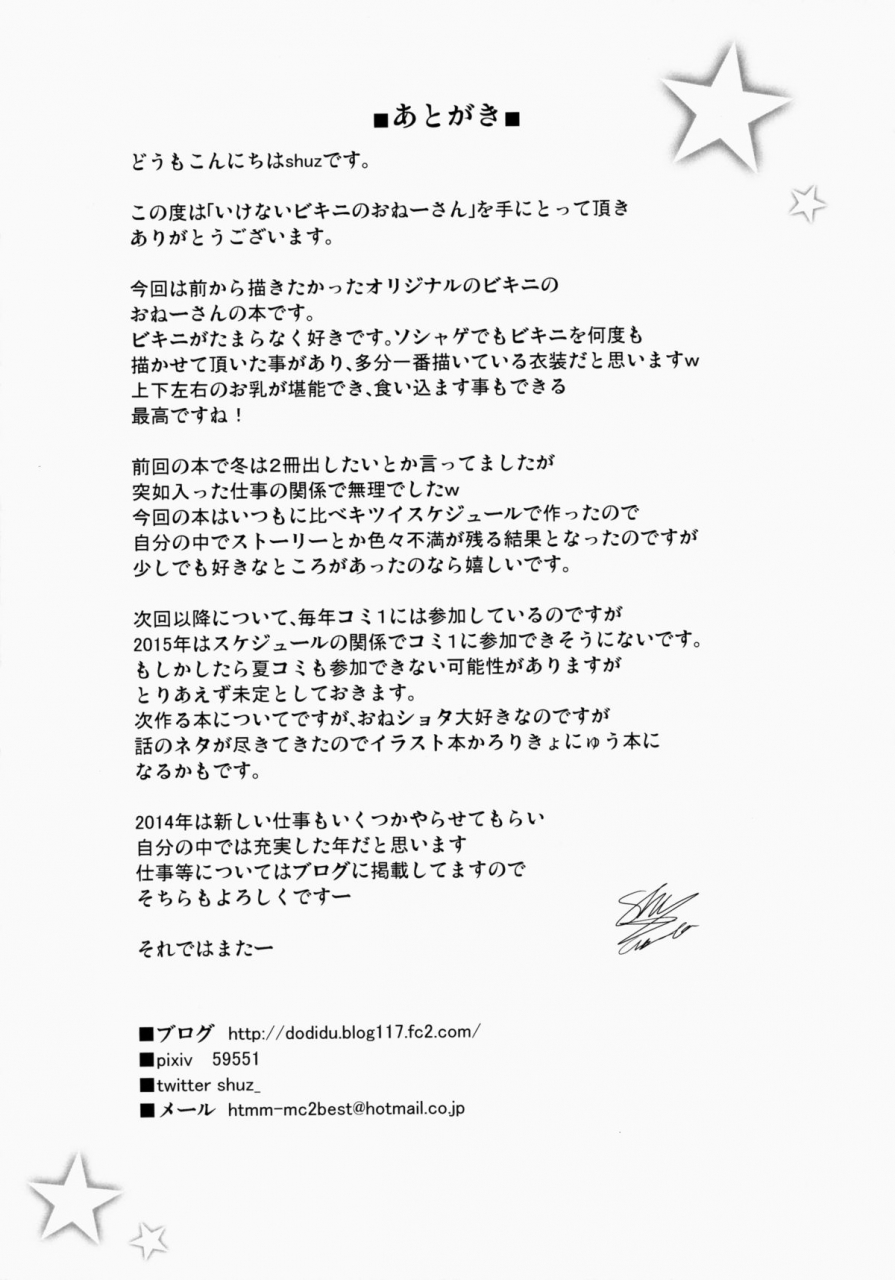 ■あとがき■
どうもこんにちはshuzです。
この度は｢いけないビキニのおねーさん｣を手にとって頂き
ありがとうございます。
今回は前から描きたかったオリジナルのビキニの
おねーさんの本です。
ビキニがたまらなく好きです。ソシャゲでもビキニを何度も
描かせて頂いた事があり、多分一番描いている衣装だと思いますw
上下左右のお乳が堪能でき、食い込ます事もできる
最高ですね！
前回の本で冬は２冊出したいとか言ってましたが
突如入った仕事の関係で無理でしたw
今回の本はいつもに比べキツイスケジュールで作ったので
自分の中でストーリーとか色々不満が残る結果となったのですが
少しでも好きなところがあったのなら嬉しいです。
次回以降について、毎年コミ１には参加しているのですが
2015年はスケジュールの関係でコミ１に参加できそうにないです。
もしかしたら夏コミも参加できない可能性がありますが
とりあえず未定としておきます。
次作る本についてですが、おねショタ大好きなのですが
話のネタが尽きてきたのでイラスト本かろりきょにゅう本に
なるかもです。
2014年は新しい仕事もいくつかやらせてもらい
自分の中では充実した年だと思います
仕事等についてはブログに掲載してますので
そちらもよろしくですー
それではまたー
Shu
■ブログ http://dodidu.blog117.fc2.com/
■pixiv 59551
■twitter shuz_
■メール htmm-mc2best@hotmail.co.jp